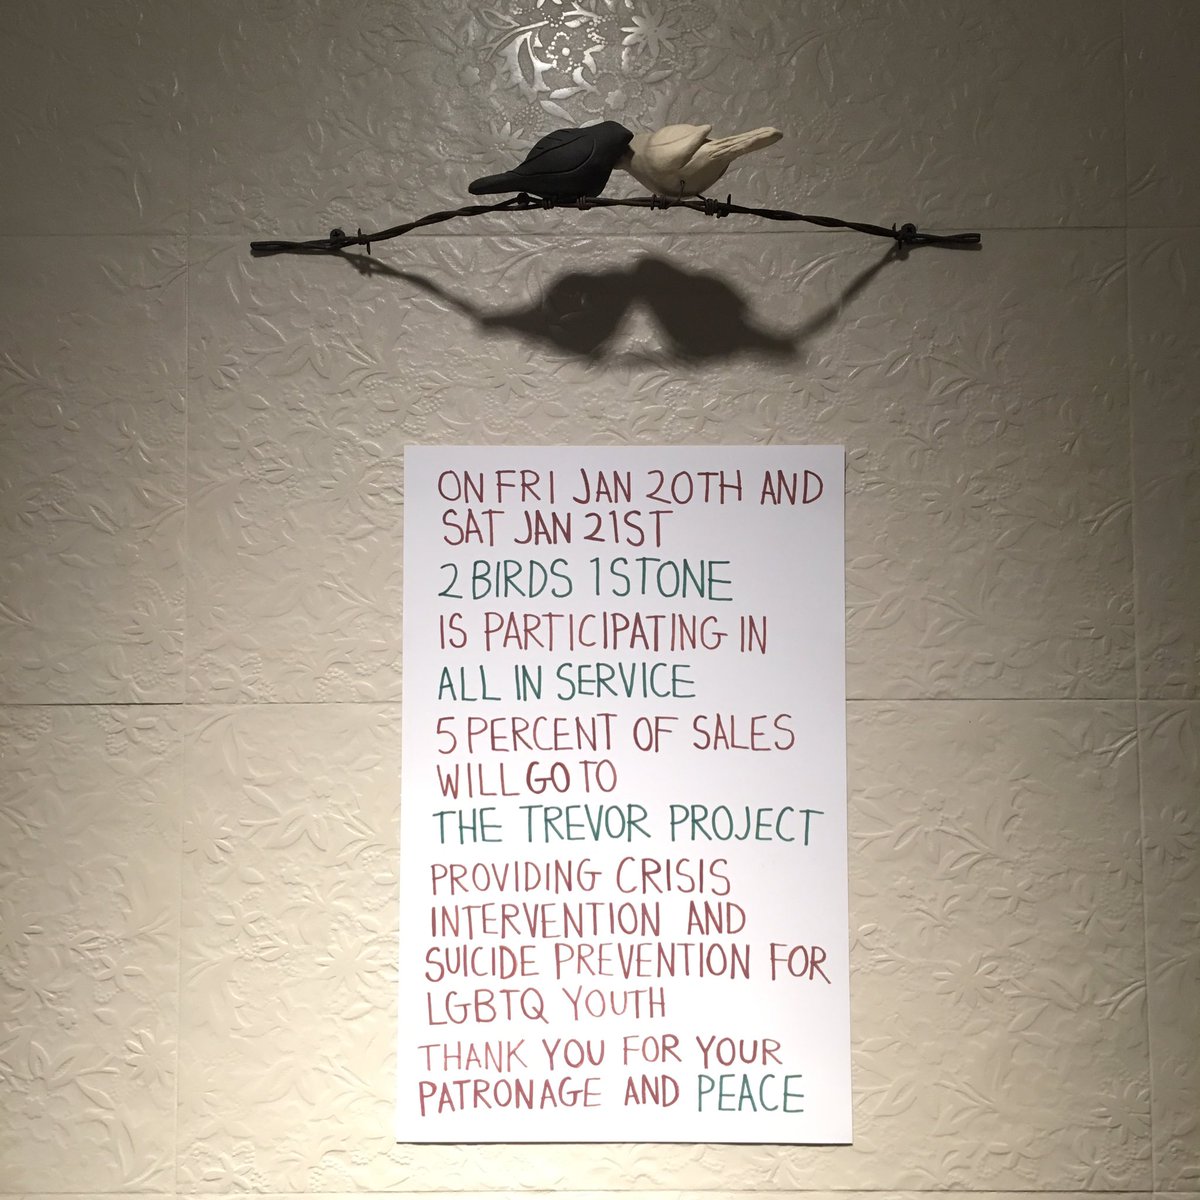 ON FRI JAN 20TH AND
SAT JAN 21ST
2 BIRDS 1 STONE
IS PARTICIPATING IN
ALL IN SERVICE
5 PERCENT OF SALES
WILL GO TO
THE TREVOR PROJECT
PROVIDING CRISIS
INTERVENTION AND
SUICIDE PREVENTION FOR
LGBTQ YOUTH
THANK YOU FOR YOUR
PATRONAGE AND PEACE